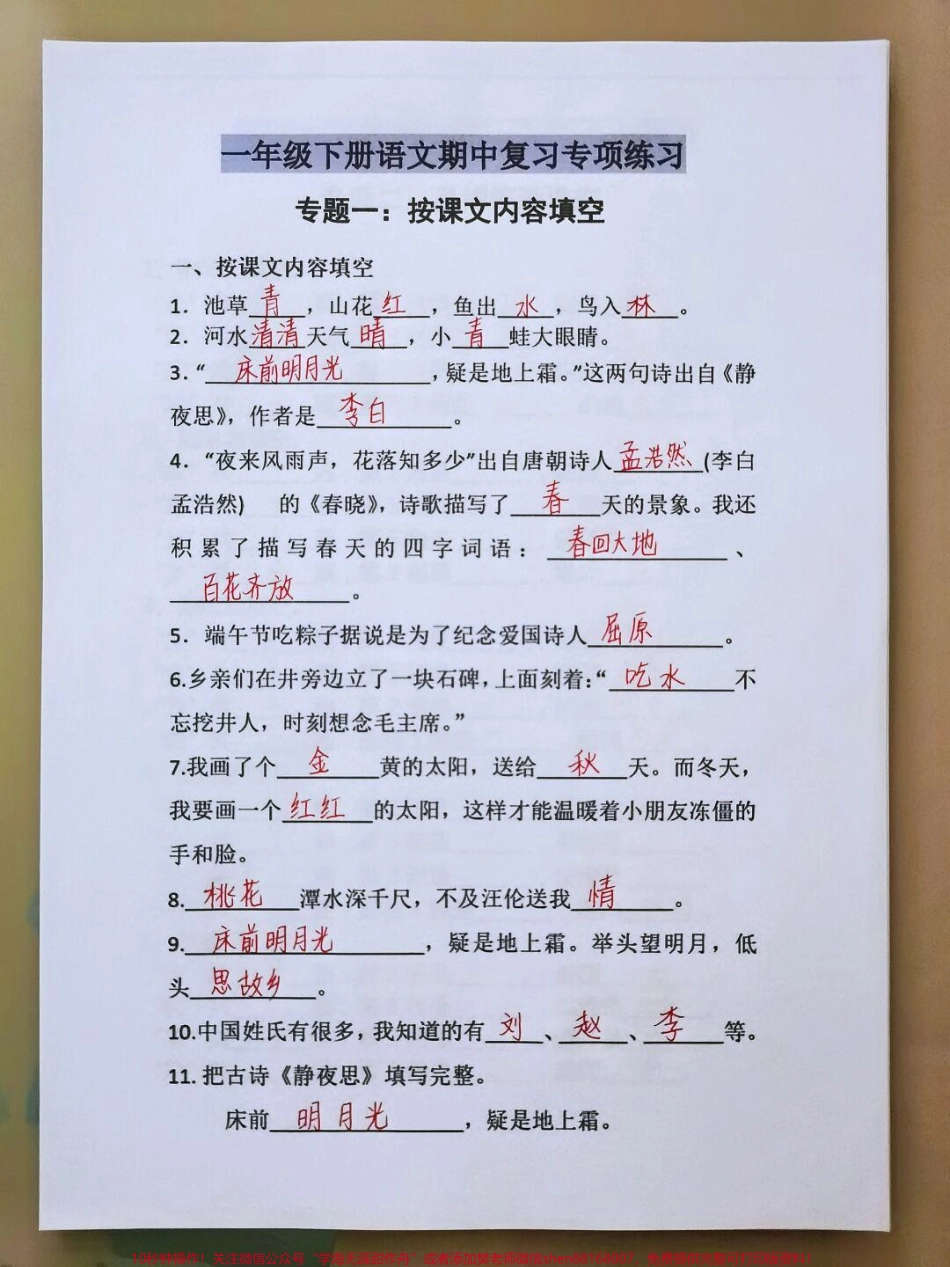 一年级下册语文期中复习专项练习
专题一：按课文内容填空
一、按课文内容填空
1. 池草青，山花红，鱼出水，鸟入林。
2. 河水清清天气晴，小青蛙大眼睛。
3. “床前明月光，疑是地上霜。”这两句诗出自《静
夜思》，作者是李白。
4. “夜来风雨声，花落知多少”出自唐朝诗人孟浩然(李白
孟浩然) 的《春晓》，诗歌描写了春天的景象。我还
积累了描写春天的四字词语：春回大地、
百花齐放。
5. 端午节吃粽子据说是为了纪念爱国诗人屈原。
6.乡亲们在井旁边立了一块石碑，上面刻着：“吃水不
忘挖井人，时刻想念毛主席。”
7.我画了个金黄的太阳，送给秋天。而冬天，
我要画一个红红的太阳，这样才能温暖着小朋友冻僵的
手和脸。
8.桃花潭水深千尺，不及汪伦送我情。
9.床前明月光，疑是地上霜。举头望明月，低
头思故乡。
10.中国姓氏有很多，我知道的有刘、赵、李等。
11. 把古诗《静夜思》填写完整。
床前明月光，疑是地上霜。